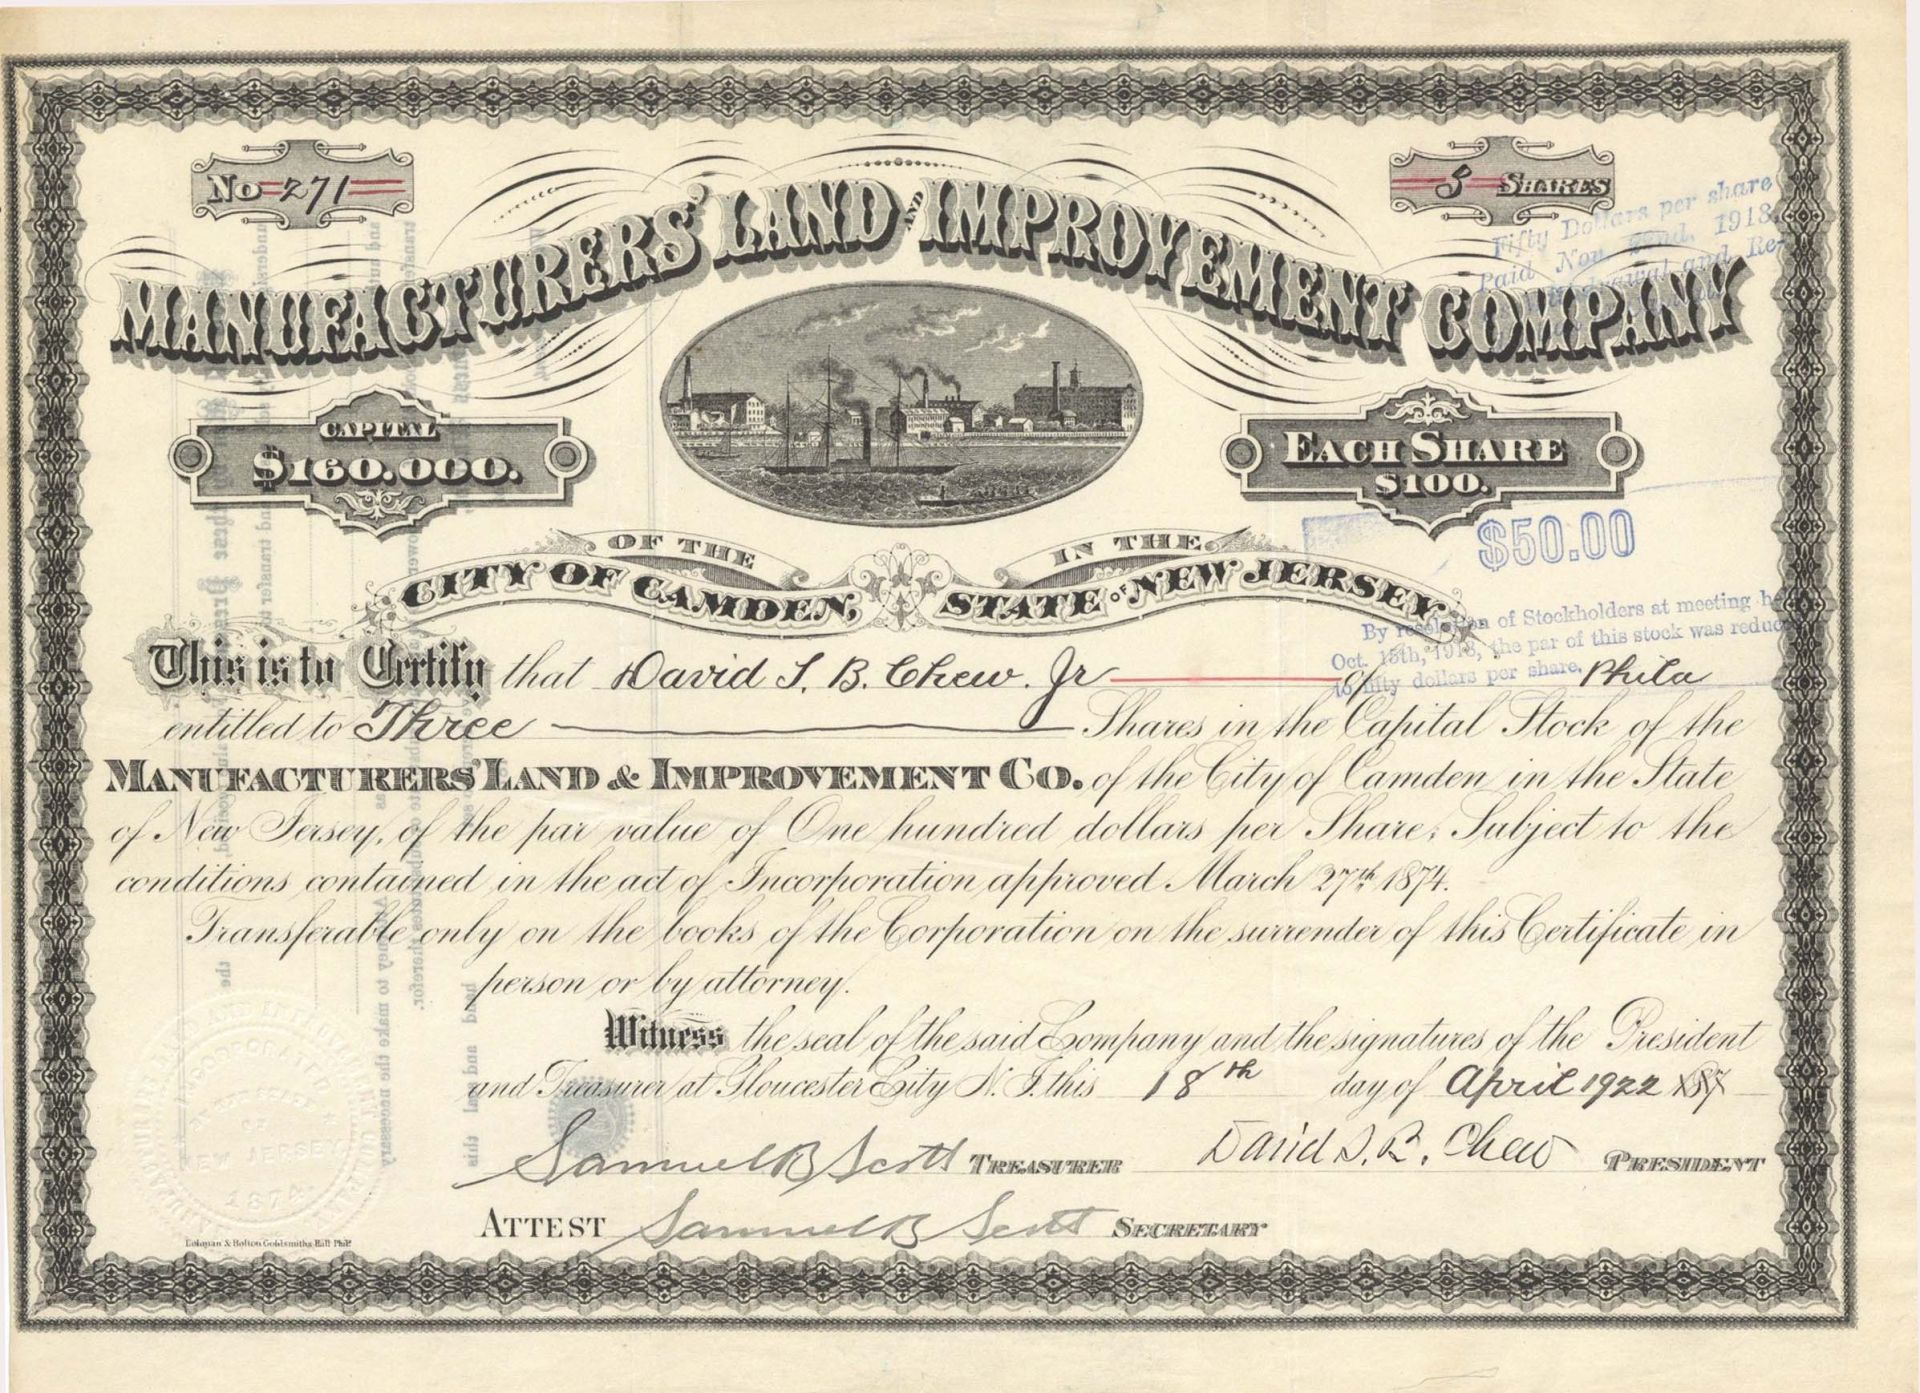 No 271
3 SHARES
Fifty Dollars per share
Paid Nov. 22nd, 1918,
and Re-
MANUFACTURERS' LAND AND IMPROVEMENT COMPANY
CAPITAL
$160.000.
EACH SHARE
$100.
$50.00
OF THE
IN THE
CITY OF CAMDEN, STATE OF NEW JERSEY
By resolution of Stockholders at meeting
Oct. 15th, 1918, the par of this stock was
to fifty dollars per share.
This is to Certify that David S. B. Chew. Jr of Phila
entitled to Three Shares in the Capital Stock of the
MANUFACTURERS' LAND & IMPROVEMENT CO. of the City of Camden in the State
of New Jersey, of the par value of One hundred dollars per Share; Subject to the
conditions contained in the act of Incorporation approved March 27th 1874.
Transferable only on the books of the Corporation on the surrender of this Certificate in
person or by attorney.
Witness the seal of the said Company and the signatures of the President
and Treasurer at Gloucester City N. J. this 18th day of April 1922 187
Samuel B Scott TREASURER David S. B. Chew PRESIDENT
ATTEST Samuel B Scott SECRETARY
INCORPORATED
OF
NEW JERSEY
1874
& Bolton Goldsmiths Hall Phila